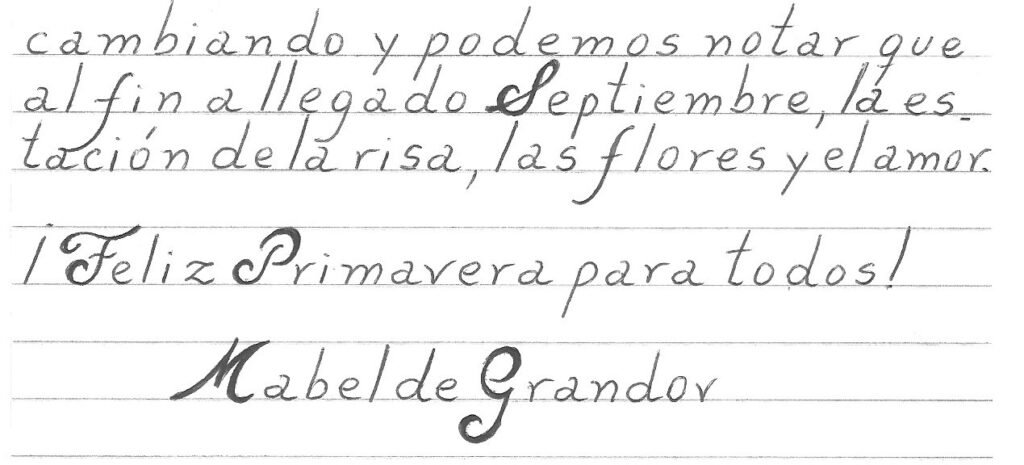 cambiando y podemos notar que
al fin a llegado Septiembre, la es-
tación de la risa, las flores y el amor.
¡Feliz Primavera para todos!
Mabel de Grandov